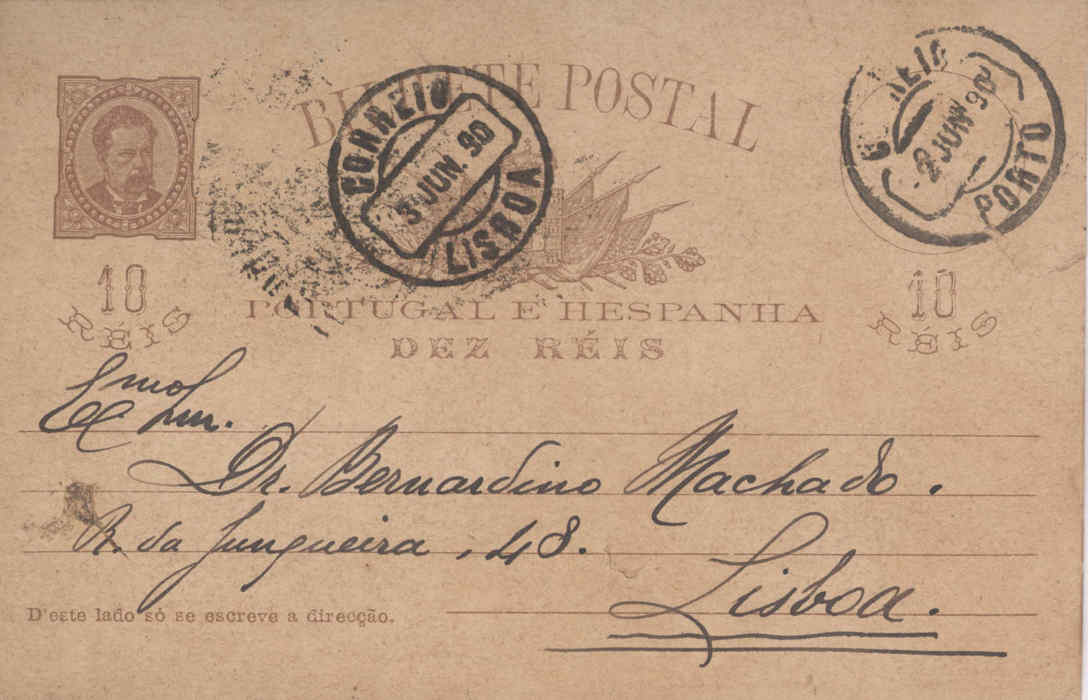 BILHETE POSTAL
CORREIO
3 JUN. 90
LISBOA
CORREIO
2 JUN 90
PORTO
10
RÉIS
10
RÉIS
PORTUGAL E HESPANHA
DEZ RÉIS
Exmo Snr.
Dr. Bernardino Machado.
R. da Junqueira, 48.
Lisboa.
D'este lado só se escreve a direcção.